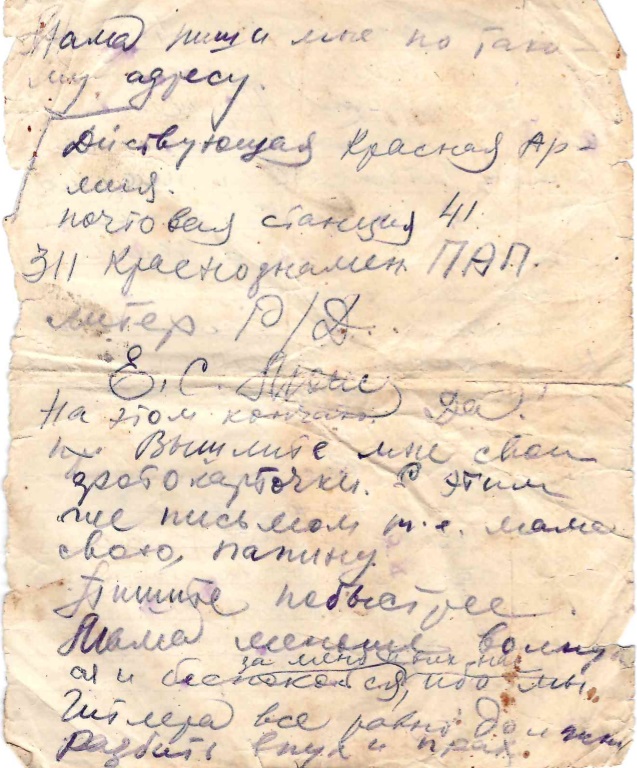 Мама пиши мне по тако-
му адресу.
Действующая Красная Ар-
мия.
почтовая станция 41
311 Краснознамен. ПАП.
литер. Р/Д.
Е. С.
На этом кончаю Да!
Вышлите мне свои
фотокарточки. С этим
же письмом т.е. мама
свою, папину.
Пишите побыстрее.
Мама меньше волнуй
ся и беспокойся, ибо мы
за меня
Гитлера все равно должны
разбить в пух и прах